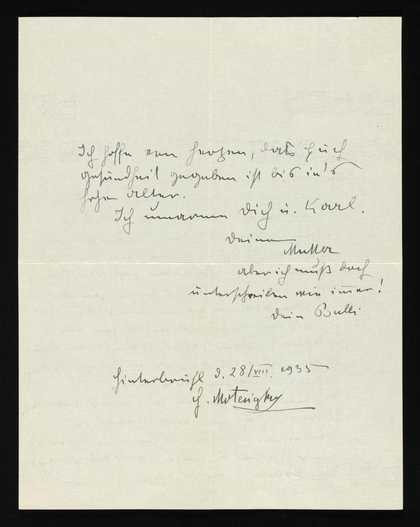 Ich hoffe von Herzen, daß Euch
Gesundheit gegeben ist bis in's
hohe Alter.
Ich umarme Dich u. Karl.
Deine
Mutter
aber ich muß doch
unterschreiben wie immer!
Dein Bulli
Hinterbrühl d. 28/VIII 1935
H. Motesiczky